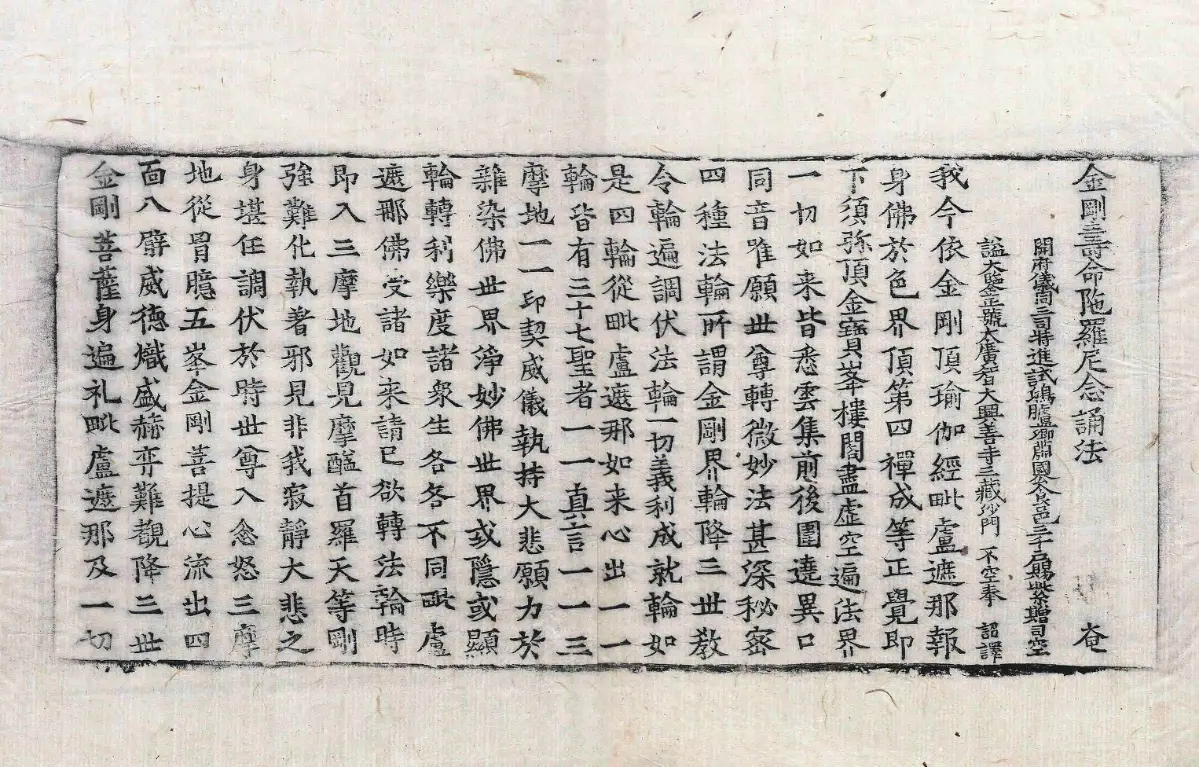 金剛壽命陁羅尼念誦法 菴
開府儀同三司特進試鴻臚卿肅國公食邑三千户賜紫贈司空
謚大鑒正號大廣智大興善寺三藏沙門 不空奉 詔譯
我今依金剛頂瑜伽經毗盧遮那報
身佛於色界頂第四禪成等正覺即
下須弥頂金寶峯樓閣盡虛空遍法界
一切如来皆悉雲集前後圍遶異口
同音唯願世尊轉微妙法甚深秘密
四種法輪所謂金剛界輪降三世教
令輪遍調伏法輪一切義利成就輪如
是四輪從毗盧遮那如来心出一一
輪皆有三十七聖者一一真言一一三
摩地一一印契威儀執持大悲願力於
雜染佛世界淨妙佛世界或隱或顯
輪轉利樂度諸衆生各各不同毗盧
遮那佛受諸如来請已欲轉法輪時
即入三摩地觀見摩醯首羅天等剛
強難化執著邪見非我寂靜大悲之
身堪任調伏於時世尊入忿怒三摩
地從胃臆五峯金剛菩提心流出四
面八臂威德熾盛赫弈難觀降三世
金剛菩薩身遍礼毗盧遮那及一切